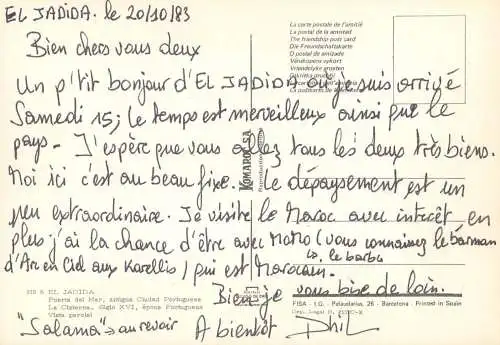 EL JADIDA. le 20/10/83
La carte postale de l'amitié
La postal de la amistad
The friendship post card
Die Freundschaftskarte
O postal de amizade
Bien chers vous deux
Un p'tit bonjour d'EL JADIDA où je suis arrivé
Samedi 15; le temps est merveilleux ainsi que le
pays - J'espère que vous allez tous les deux très biens.
Moi ici c'est au beau fixe. Le dépaysement est un
peu extraordinaire. Je visite le Maroc avec intérêt en
plus j'ai la chance d'être avec MOMO (vous connaissez le barman
d'Arc en Ciel aux Karellis) qui est Marocain.
↳ le barbu
Bien je vous bise de loin.
EL JADIDA
Puerta del Mar, antigua Ciudad Portuguesa
La Cisterna, siglo XVI, época Portuguesa
Vista parcial
KOMAROC-S.A.
FISA - I.G. - Palaudarias, 26 - Barcelona - Printed in Spain
"Salama" → au revoir A bientôt Phil